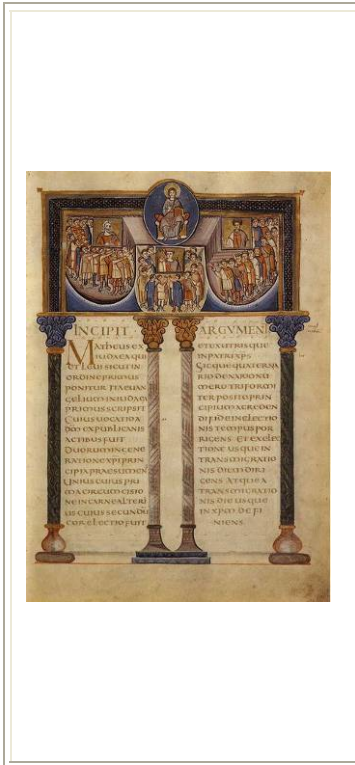 INCIPIT ·
Matheus ex
iudaea qui
et leui sicut in
ordine primus
ponitur ita euan
gelium in iudaea
primus scripsit
Cuius uocatio a
dm ex publicanis
actibus fuit
duorum in gene
ratione xpi prin
cipia praesumens
Unius cuius pri
ma circumcisio
ne in carne alteri
us cuius secundu
cor electio fuit
ARGVMEN
et ex utrisque
in patre xps
Sicque quaterna
rio denario nu
mero triformi
ter posito prin
cipium a creden
di fide in electio
nis tempus por
rigens et ex elec
tione usque in
transmigratio
nis diem diri
gens atque a
transmigratio
nis die usque
in xpm defi
niens